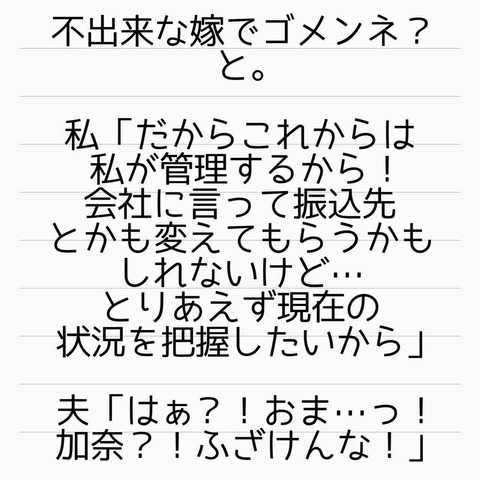 不出来な嫁でゴメンネ？
と。
私「だからこれからは
私が管理するから！
会社に言って振込先
とかも変えてもらうかも
しれないけど…
とりあえず現在の
状況を把握したいから」
夫「はぁ？！おま…っ！
加奈？！ふざけんな！」